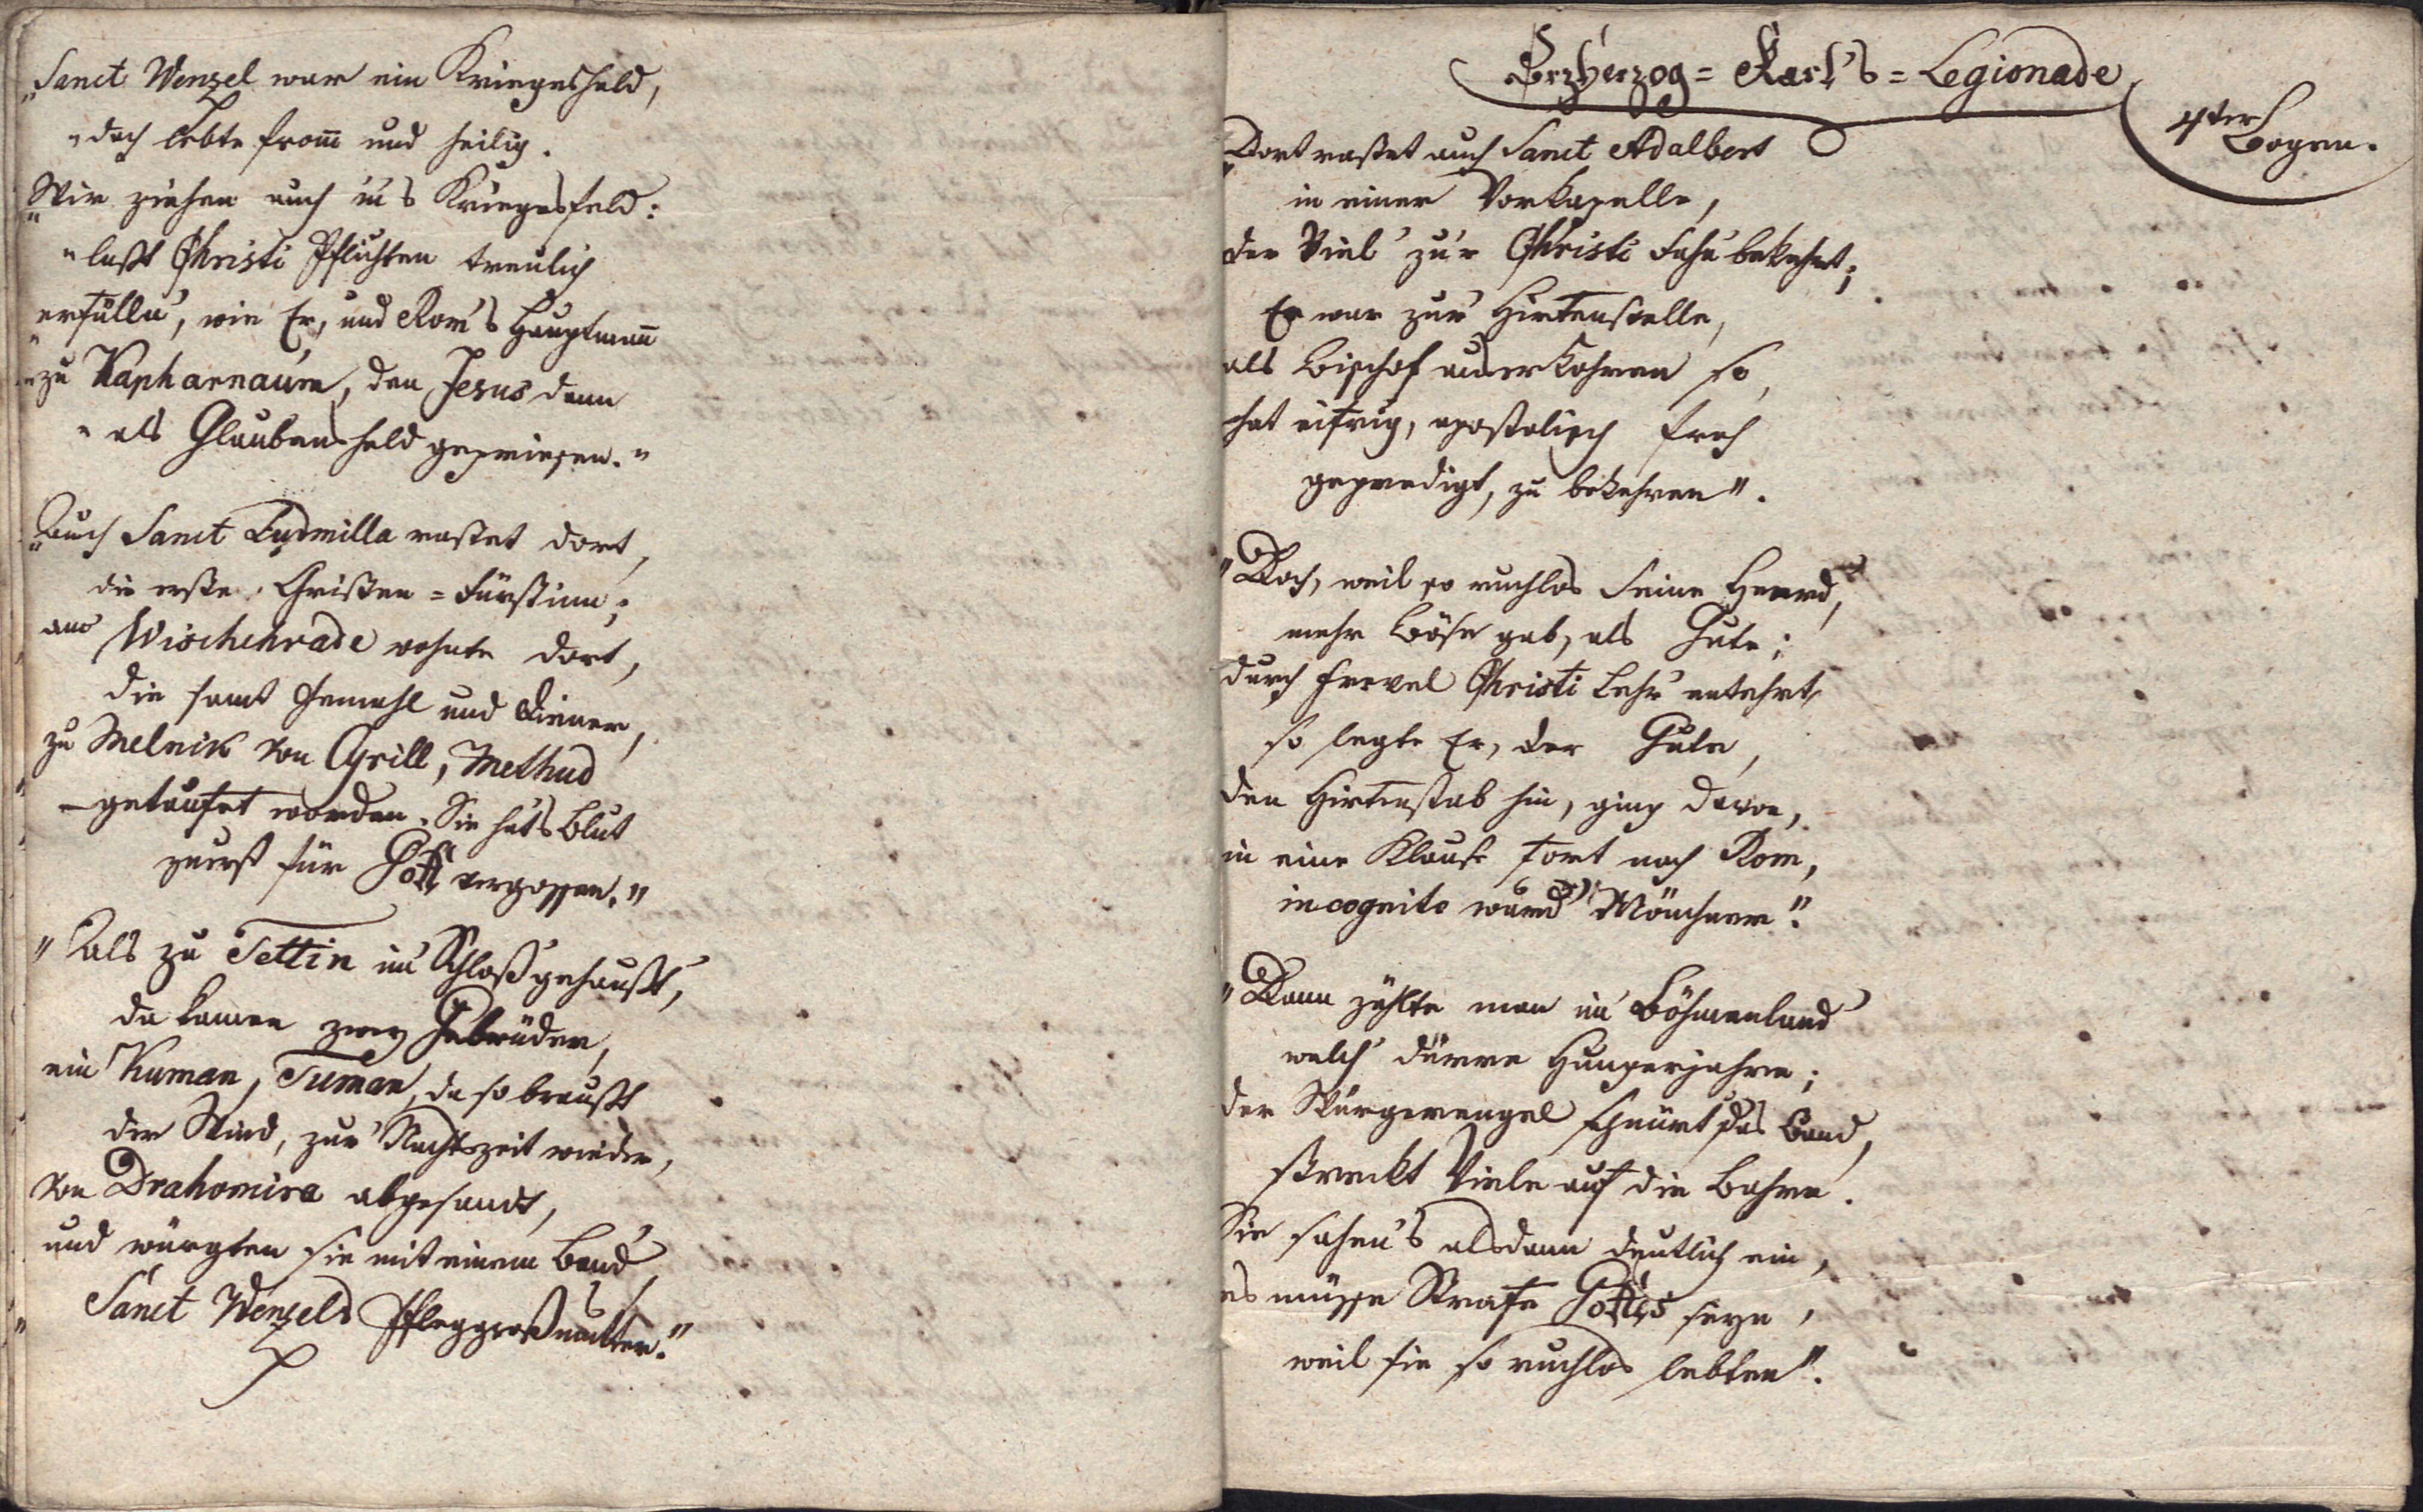 "Sanct Wenzel war ein Kriegesheld,
"doch lebte from̅ und heilig.
"Wir ziehen auch in's Kriegesfeld:
"laßt Christi Pflichten treulich
"erfülln', wie Er, und Rom's Hauptman̅
"zu Kapharnaum, den Jesus dann
"als Glaubensheld gepriesen."
"Auch Sanct Ludmilla rastet dort,
die erste Christen=Fürstinn;
aus Wischehrade wohnte dort,
die samt Gemahl und Diener,
zu Melnik von Cyrill, Methud
getaufet worden. Sie hat's Blut
zuerst für Gott vergossen."
"Als zu Tettin im Schloß gehaußt,
da kamen zwey Gebrüder,
ein Kuman, Tuman, da so braußt
der Wind, zur Nachtszeit wieder,
von Drahomira abgesandt,
und würgten sie mit einem Band
Sanct Wenzels Pfleggroßmutter."
Erzherzog=Karl's=Legionade
4ter Bogen.
"Dort rastet auch Sanct Adalbert
in einer Vorkapelle,
der Viel' zur Christi Fahn' bekehrt;
Er war zur Hirtenstelle,
als Bischof auserkohren so,
hat eifrig, apostolisch froh
gepredigt, zu bekehren".
"Doch, weil so ruchlos seine Heerd,
mehr Böse gab, als Gute;
durch Frevel Christi Lehr' entehrt,
so legte Er, der Gute,
den Hirtenstab hin, ging davon,
in eine Klause fort nach Rom,
incognito ward Mönchner".
"Dann zählte man im Böhmenland
welch' dürre Hungerjahre;
der Würgerengel schnürt das Band,
streckt Viele auf die Bahre.
Sie sahen's alsdann deutlich ein,
es müsse Strafe Gottes seyn,
weil sie so ruchlos lebten".